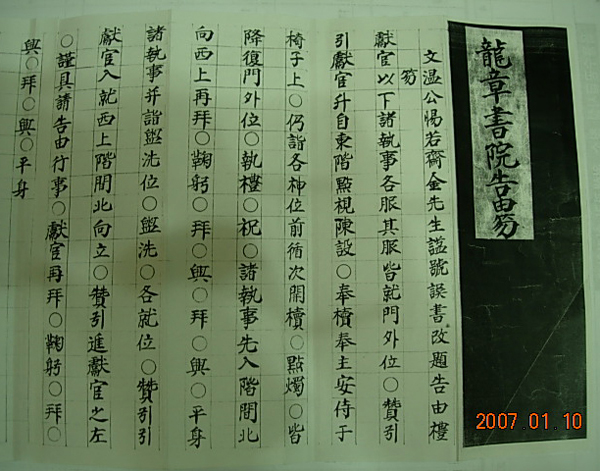 龍章書院告由笏
文温公惕若齋金先生諡號誤書改題告由禮
笏
獻官以下諸執事各服其服皆就門外位○贊引
引獻官升自東階點視陳設○奉櫝奉主安侍于
椅子上○仍詣各神位前循次開櫝○點燭○皆
降復門外位○執禮○祝○諸執事先入階間北
向西上再拜○鞠躬○拜○興○拜○興○平身
諸執事幷詣盥洗位○盥洗○各就位○贊引引
獻官入就西上階間北向立○贊引進獻官之左
○謹具請告由行事○獻官再拜○鞠躬○拜○
興○拜○興○平身
2007.01.10